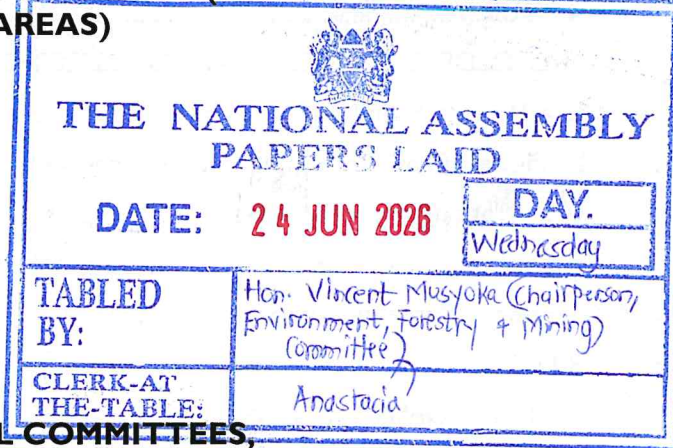 AREAS)
THE NATIONAL ASSEMBLY
PAPERS LAID
DATE: 24 JUN 2026 DAY.
Wednesday
TABLED BY: Hon. Vincent Musyoka (Chairperson,
Environment, Forestry & Mining)
Committee)
CLERK-AT
THE-TABLE: Anastacia
L COMMITTEES,